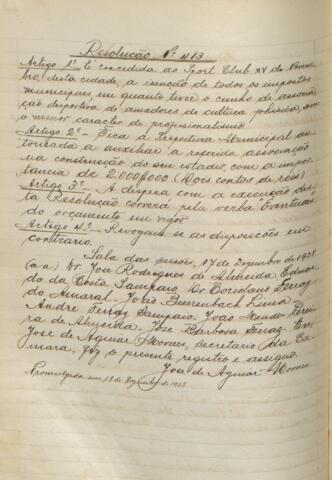 Resolução Nº 413
Artigo 1º É concedida ao Sport Club XV de Novem-
bro, desta cidade, a isenção de todos os impostos
municipaes, em quanto tiver o cunho de associa-
ção desportiva de amadores de cultura phisica, sem
o menor caracter de profissionalismo.
Artigo 2º - Fica a Prefeitura Municipal au-
torisada a auxiliar a referida associação
na construcção do seu estadio, com a impor-
tancia de 2:000$000 (Dois contos de réis)
Artigo 3º - A despesa com a execução des-
ta Resolução correrá pela verba "Eventuaes"
do orçamento em vigor
Artigo 4º - Revogam se as disposições em
contrario.
Sala das sessões, 17 de Dezembro de 1928.
(a.a.) Dr José Rodrigues de Almeida, Eduar-
do da Costa Sampaio, Dr Coreolano Ferraz
do Amaral. João Lima
André Ferraz Sampaio, João Mendes Perei-
ra de Almeida. José Barbosa Ferraz. Eu,
José de Aguiar Moraes, secretario da Ca-
mara, fiz o presente registro e assigno.
José de Aguiar Moraes.
Promulgada em 18 de Dezembro de 1928